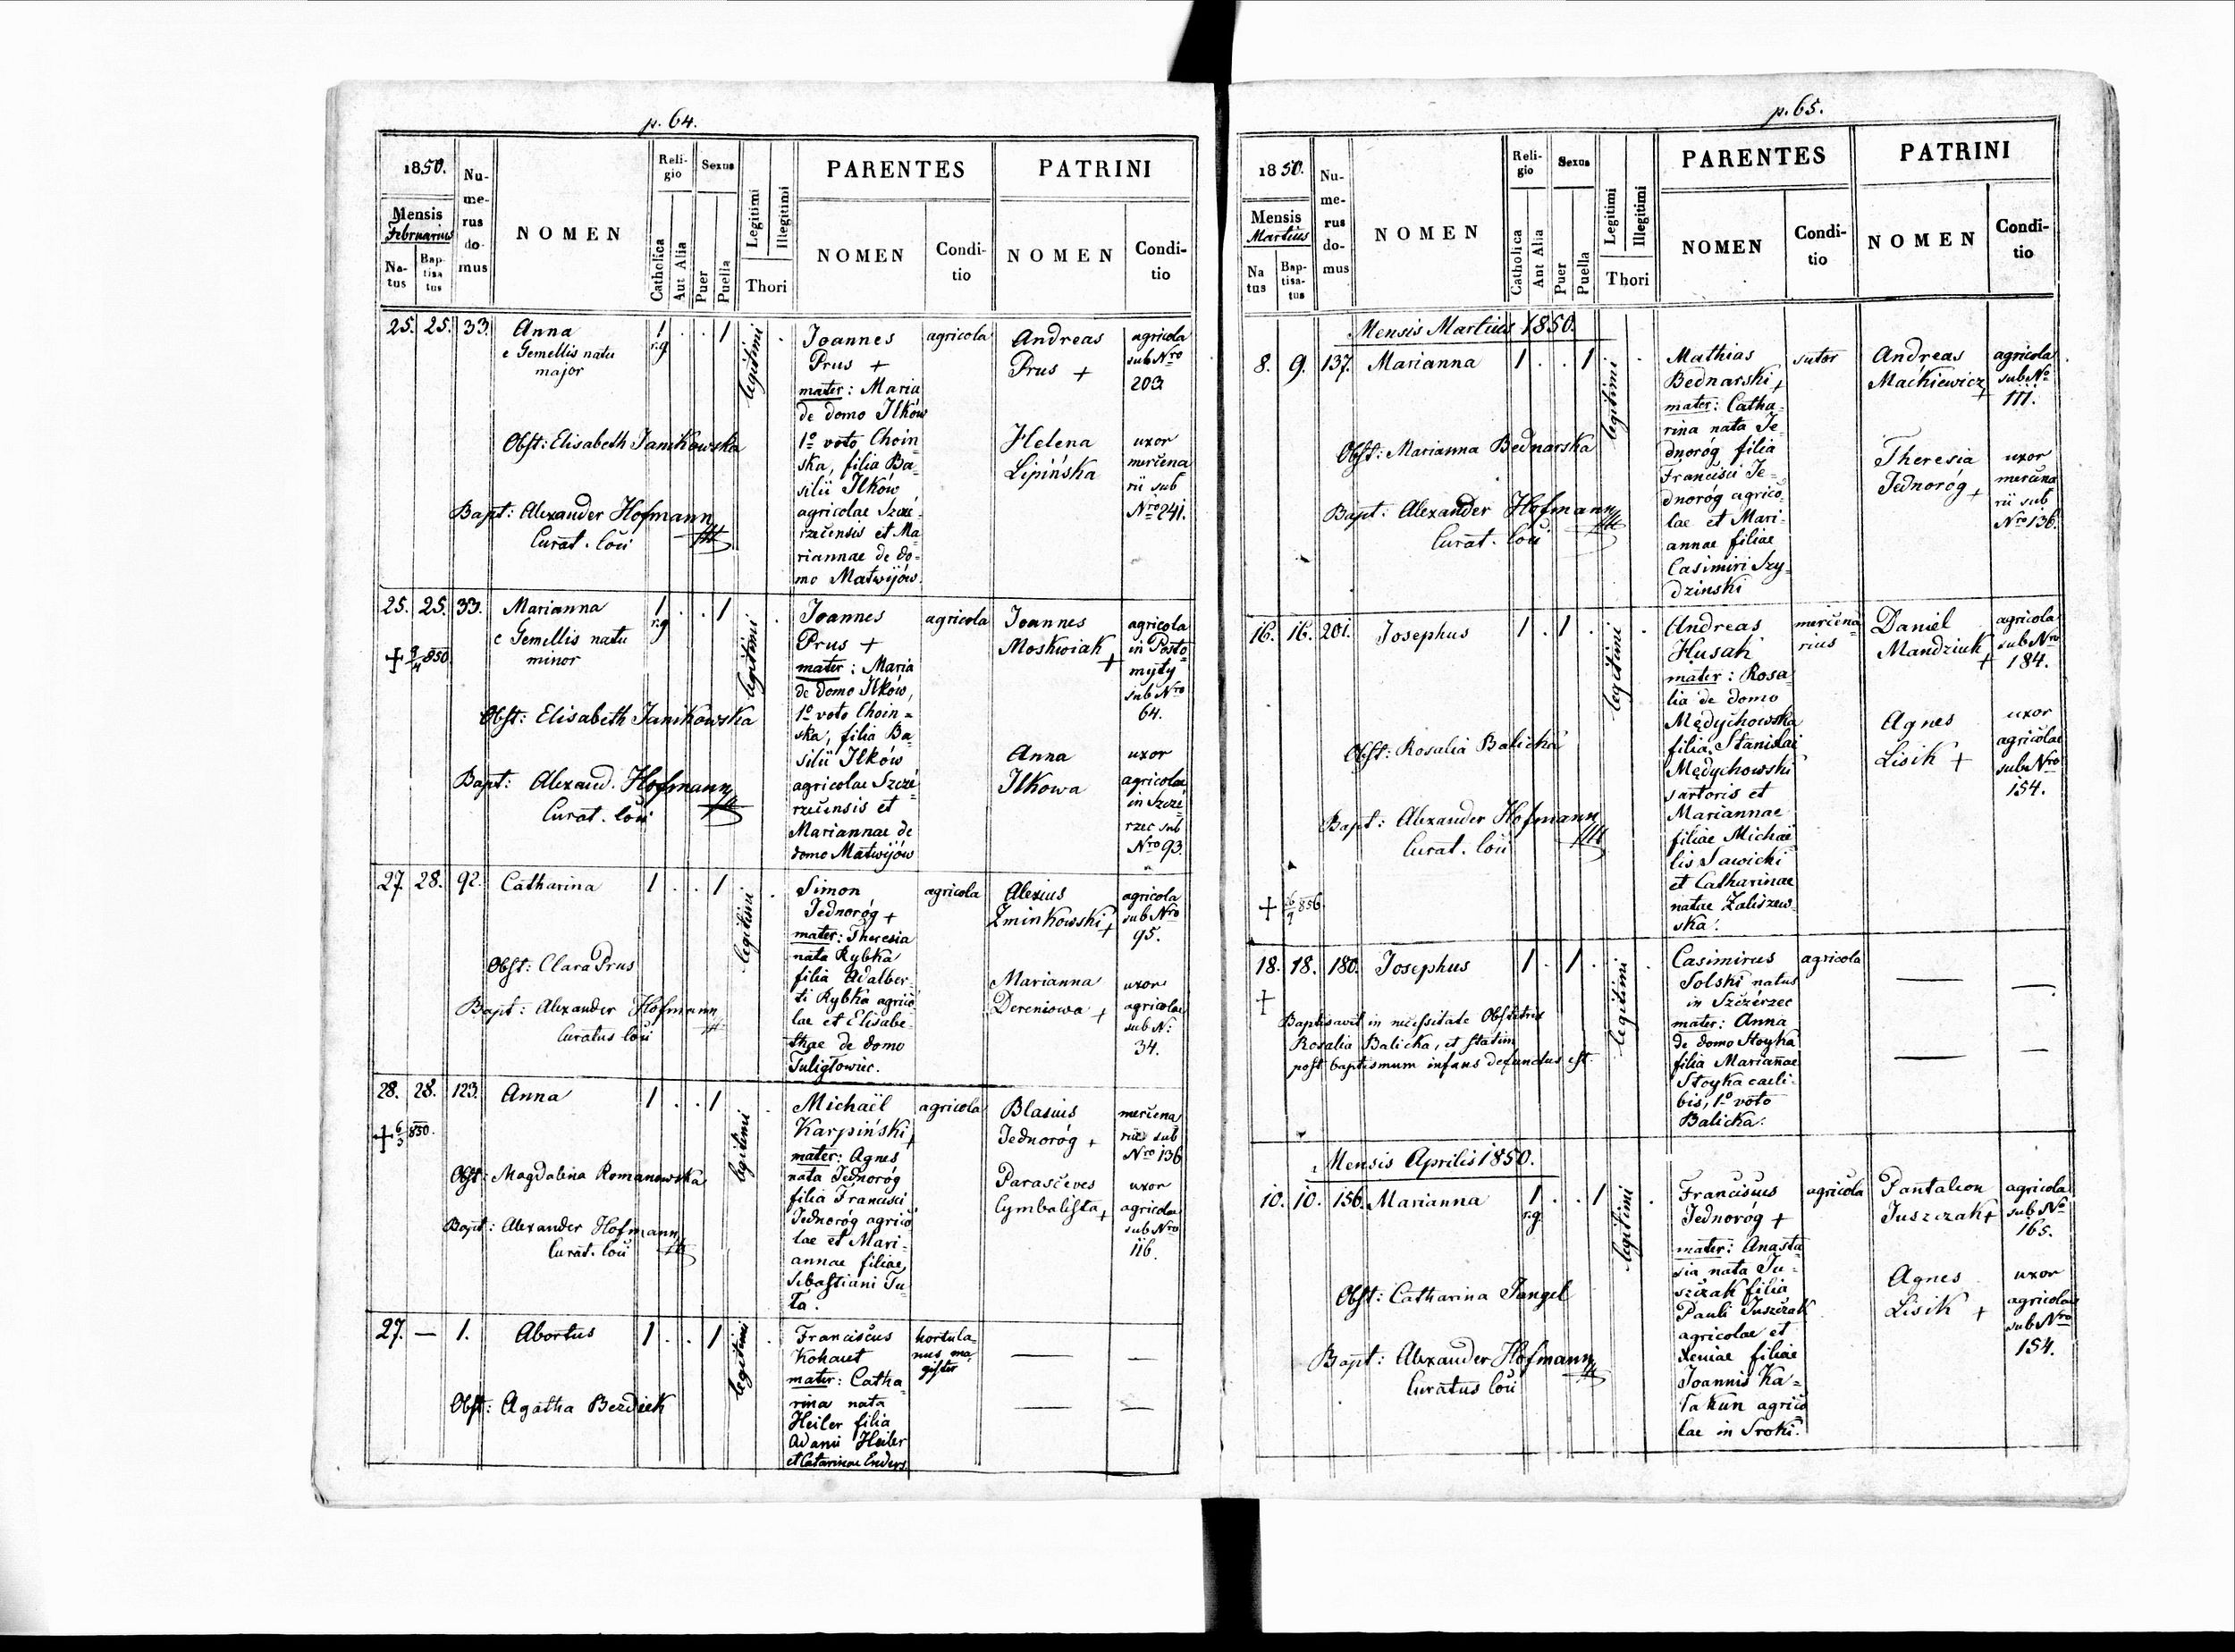 p. 64.
1850.
Mensis
Februarius
Na-
tus
Bap-
tisa
tus
Nu-
me-
rus
do-
mus
NOMEN
Reli-
gio
Catholica
Aut Alia
Sexus
Puer
Puella
Legitimi
Illegitimi
Thori
PARENTES
NOMEN
Condi-
tio
PATRINI
NOMEN
Condi-
tio
25. 25. 33. Anna 1 . . 1 legitimi .
r.g.
e Gemellis natu
major
Obst: Elisabeth Janikowska
Bapt: Alexander Hofmann
Curat. loci
Joannes
Prus +
mater: Maria
de domo Ilków
1º voto Choin-
ska, filia Ba-
silii Ilków
agricolae Szczé-
rzecensis et Ma-
riannae de do-
mo Matwijów.
agricola
Andreas
Prus +
agricola
sub Nro
203
Helena
Lipińska
uxor
mercena
rii sub
Nro 241.
25. 25. 33. Marianna 1 . . 1 legitimi .
r.g
e Gemellis natu
minor
+ 9/4 850.
Obst: Elisabeth Janikowska
Bapt: Alexand. Hofmann
Curat. loci
Joannes
Prus +
mater: Maria
de domo Ilków,
1º voto Choin=
ska, filia Ba-
silii Ilków
agricolae Szczé-
rzecensis et
Mariannae de
domo Matwijów
agricola
Joannes
Moskwiak
+
agricola
in Posto-
myty
sub Nro
64.
Anna
Ilkowa
uxor
agricolae
in Szczé-
rzec sub
Nro 93.
27. 28. 92. Catharina 1 . . 1 legitimi .
Obst: Clara Prus
Bapt: Alexander Hofmann
Curatus loci
Simon
Jednoróg +
mater: Theresia
nata Rybka
filia Adalber-
ti Rybka agrico
lae et Elisabe-
thae de domo
Tuligłowiec.
agricola
Alexius
Zminkowski +
agricola
sub Nro
95.
Marianna
Dereniowa +
uxor
agricolae
sub N:
34.
28. 28. 123. Anna 1 . . 1 legitimi .
+ 6/3 850.
Obst: Magdalena Romanowska
Bapt: Alexander Hofmann
Curat. loci
Michaël
Karpiński +
mater: Agnes
nata Jednoróg
filia Francisci
Jednoróg agrico
lae et Mari-
annae filiae
Sebastiani Tu-
ła.
agricola
Blasius
Jednoróg +
mercena
rius sub
Nro 136
Parasceves
Cymbalista +
uxor
agricolae
sub Nro
116.
27. — 1. Abortus 1 . . 1 legitimi .
Obst: Agatha Bezdiek
Franciscus
Kohaut
mater: Catha-
rina nata
Heiler filia
Adami Heiler
et Catarinae Enders.
hortula-
nus ma
gister
— —
— —
p. 65.
1850.
Mensis
Martius
Na
tus
Bap-
tisa-
tus
Nu-
me-
rus
do-
mus
NOMEN
Reli-
gio
Catholica
Aut Alia
Sexus
Puer
Puella
Legitimi
Illegitimi
Thori
PARENTES
NOMEN
Condi-
tio
PATRINI
NOMEN
Condi-
tio
Mensis Martius 1850.
8. 9. 137. Marianna 1 . . 1 legitimi .
Obst: Marianna Bednarska
Bapt: Alexander Hofmann
Curat. loci
Mathias
Bednarski +
mater: Catha-
rina nata Je-
dnoróg filia
Francisci Je-
dnoróg agrico
lae et Mari-
annae filiae
Casimiri Szy-
dzinski
sutor
Andreas
Mackiewicz +
agricola
sub No
111.
Theresia
Jednorog +
uxor
mercena
rii sub
Nro 136.
16. 16. 201. Josephus 1 . 1 . legitimi .
Obst: Rosalia Balicka
Bapt: Alexander Hofmann
Curat. loci
+ 856.
Andreas
Husak
mater: Rosa-
lia de domo
Mędychowska
filia Stanislai
Mędychowski
sartoris et
Mariannae
filiae Michaë
lis Sawicki
et Catharinae
natae Zaliszew-
ska.
mercena-
rius
Daniel
Mandziuk
+
agricola
sub Nro
184.
Agnes
Lisik +
uxor
agricolae
sub Nro
154.
18. 18. 180. Josephus 1 . 1 . legitimi .
+
Baptisavit in necessitate Obstetrix
Rosalia Balicka, et statim
post baptismum infans defunctus est.
Casimirus
Solski natus
in Szczérzec
mater: Anna
de domo Stoyka
filia Mariannae
Stoyka caeli-
bis, 1º voto
Balicka.
agricola
— —
— —
Mensis Aprilis 1850.
10. 10. 156. Marianna 1 . . 1 legitimi .
r.g.
Obst: Catharina Jangel
Bapt: Alexander Hofmann
Curatus loci
Franciscus
Jednoróg +
mater: Anasta-
sia nata Ju-
szczak filia
Pauli Juszczak
agricolae et
Xeniae filiae
Joannis Ka-
łakun agrico
lae in Sroki.
agricola
Pantaleon
Juszczak +
agricola
sub No
165.
Agnes
Lisik +
uxor
agricolae
sub Nro
154.